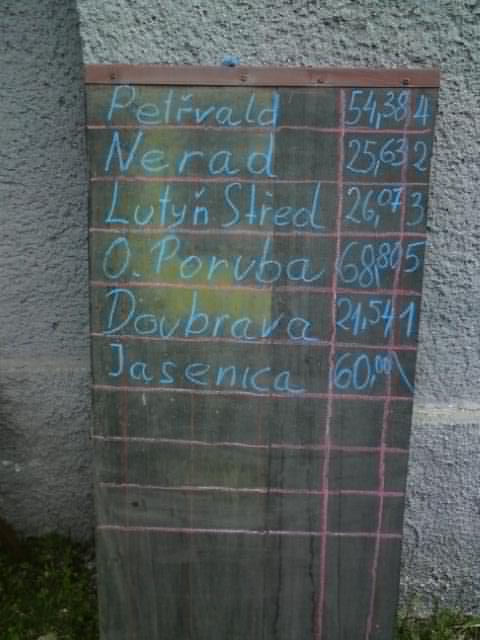 Petřvald 54,38 4
Nerad 25,63 2
Lutyň Střed 26,07 3
O. Poruba 68,80 5
Doubrava 21,54 1
Jasenica 60,00 \